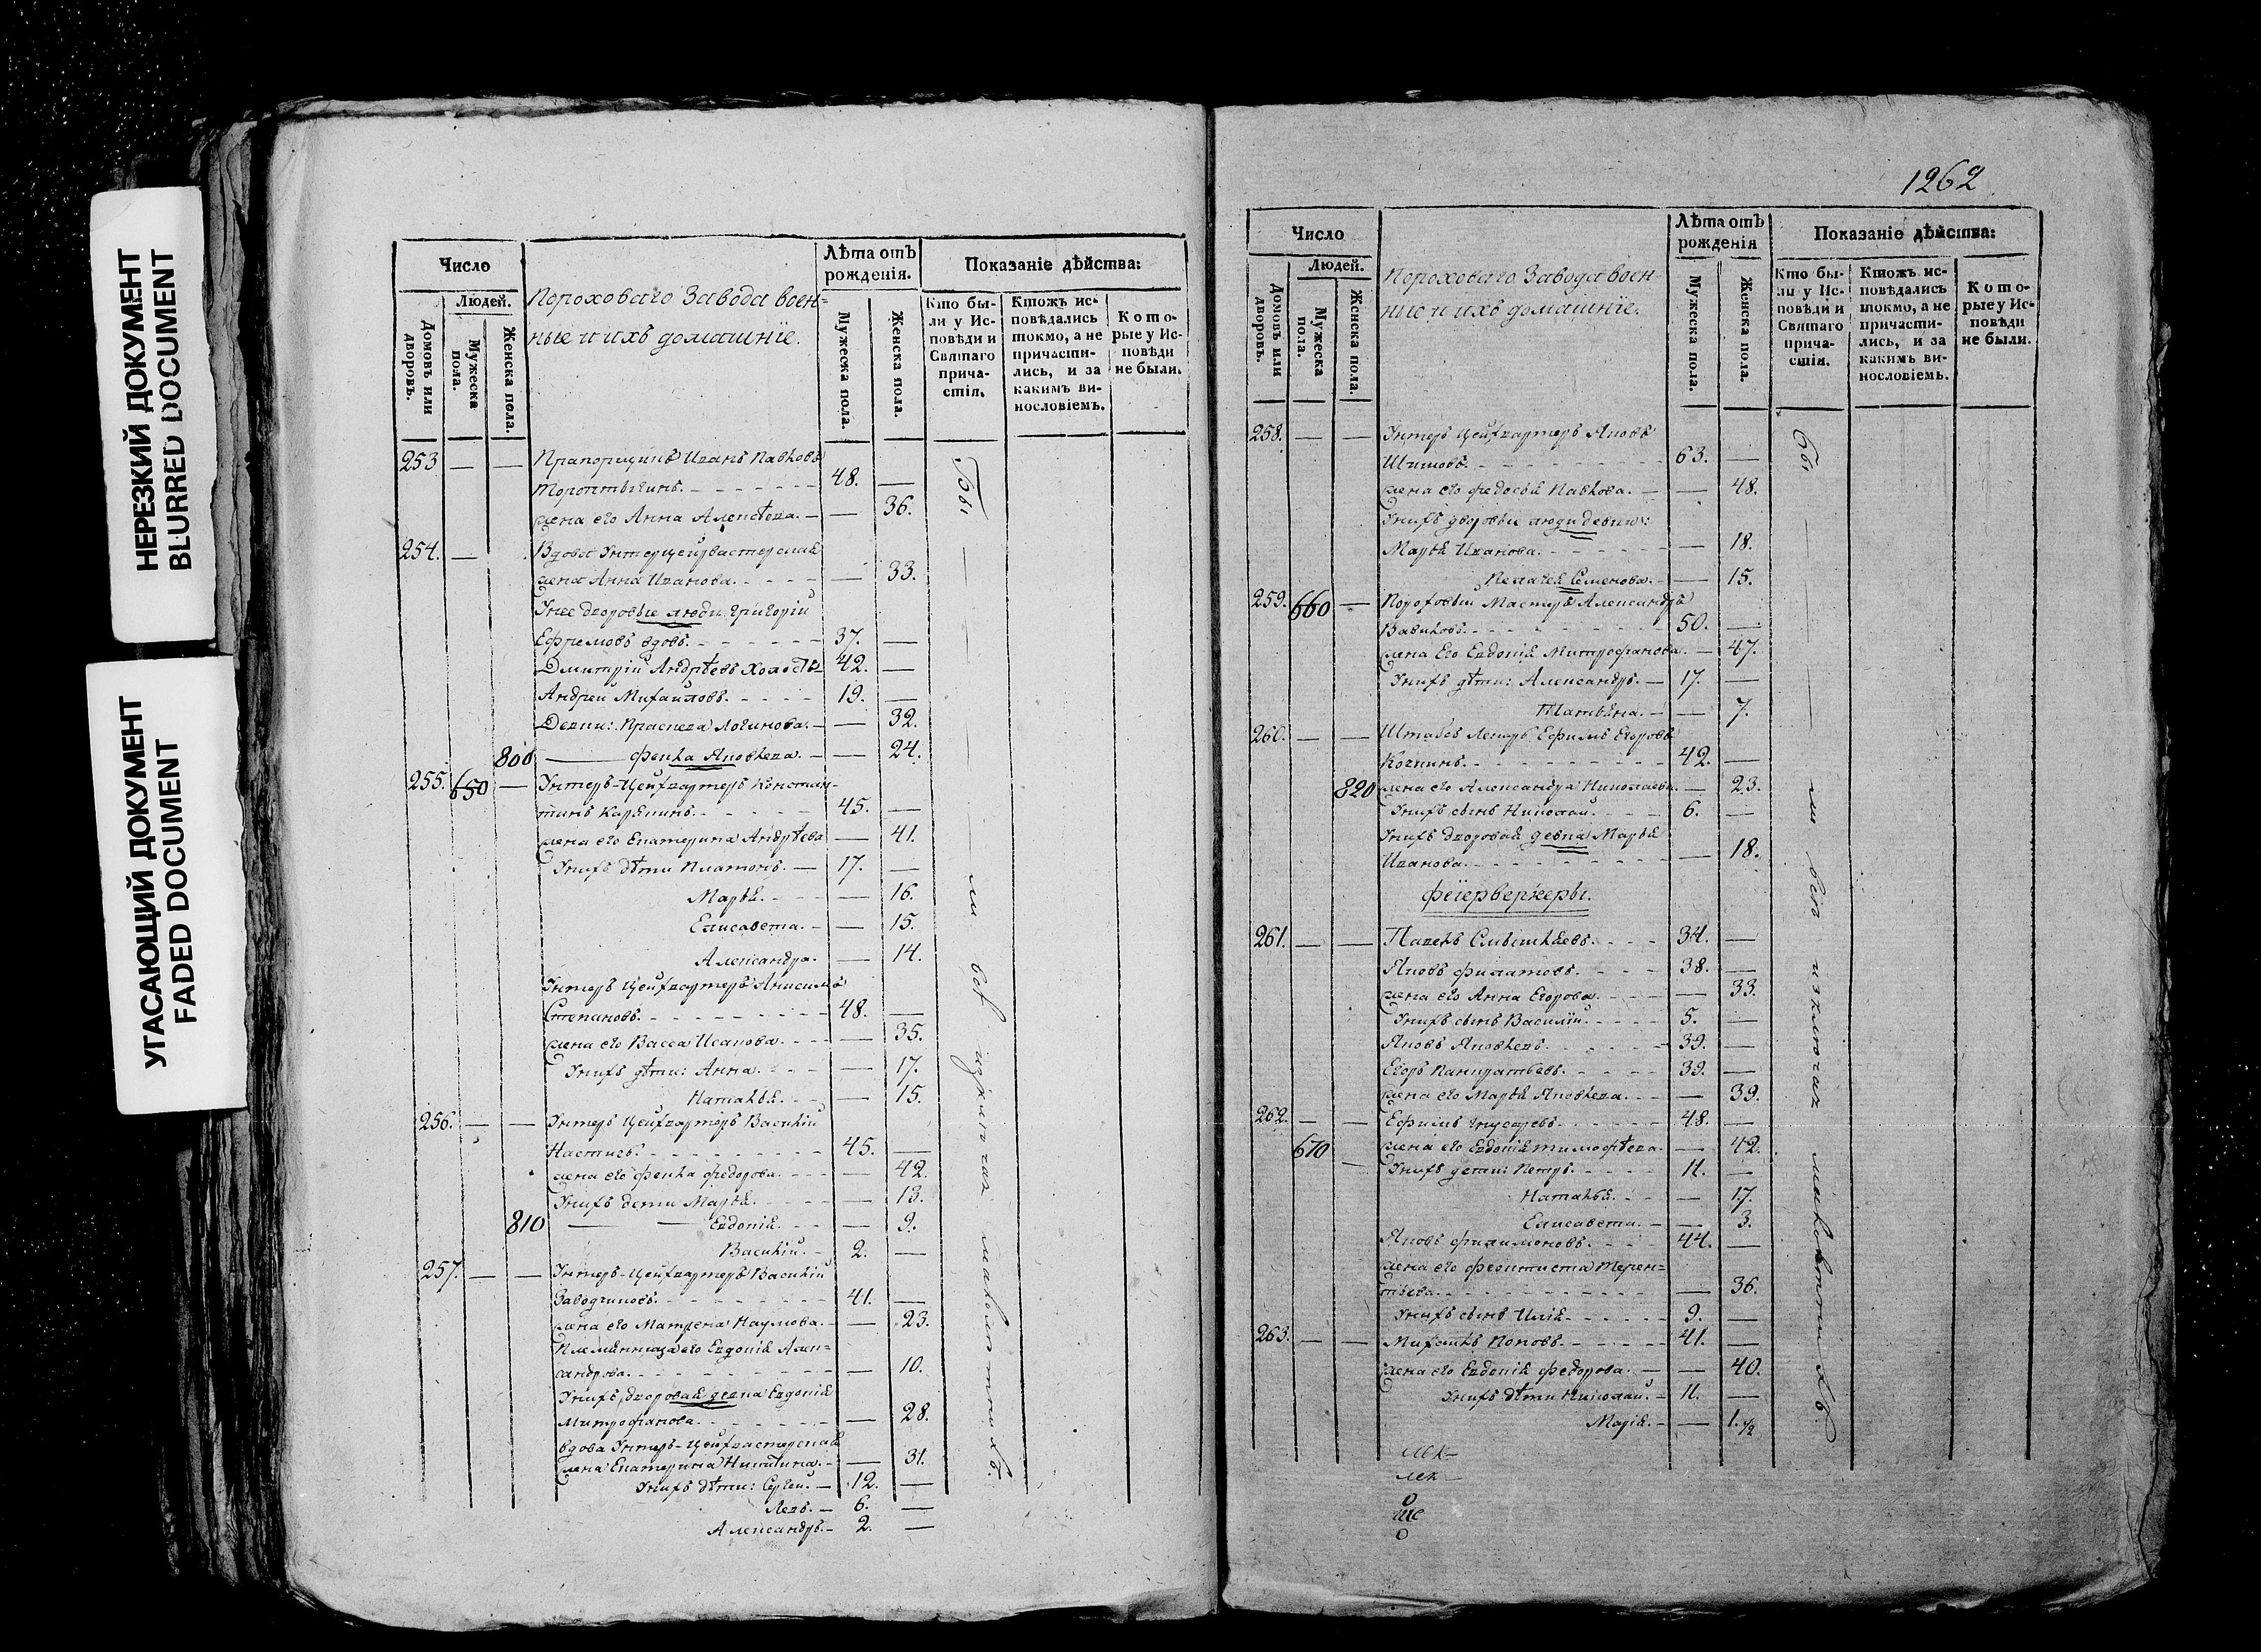 НЕРЕЗКИЙ ДОКУМЕНТ
BLURRED DOCUMENT
УГАСАЮЩИЙ ДОКУМЕНТ
FADED DOCUMENT
Число
Людей.
Домовъ или дворовъ.
Мужеска пола.
Женска пола.
Пороховаго Завода воен=
ные и ихъ домашніе.
Лѣта отъ
рожденія.
Мужеска пола.
Женска пола.
Показаніе дѣйства:
Кто бы-
ли у Ис-
повѣди и
Святаго
прича-
стія.
Ктожъ ис-
повѣдались
токмо, а не
причасти-
лись, и за
какимъ ви-
нословіемъ.
Кото-
рые у Ис-
повѣди
не были.
253 — — Прапорщикъ Иванъ Павловъ
48. —
жена его Анна Алексѣева. — — 36.
254. — Вдова
жена Анна Иванова. — 33.
У нее дворовые люди: Григорій
Ефремовъ вдовъ. 37. —
Дмитрій Андрѣевъ холостъ 42. —
Андрей Михайловъ. 19. —
Девки: Прасковья Логинова. — — 32.
800 — Фекла Яковлева. — — 24.
255. 650 — Унтеръ-Цейхвартеръ Констан-
тинъ 45. —
жена его Екатерина Андрѣева — 41.
У нихъ дѣти Платонъ. — 17. —
Марья. — 16.
Елисавета. — — 15.
Александра. — 14.
Унтеръ Цейхвартеръ Анисимъ
Степановъ. 48. —
жена его Васса Исакова. — 35.
У нихъ дѣти: Анна. — 17.
Наталья. — 15.
256. — — Унтеръ Цейхвартеръ Василій
45. —
жена его Фекла Федорова. — 42.
У нихъ дети Марья. — 13.
810 — — Евдокія. — 9.
Василій. 2. —
257. — — Унтеръ-Цейхвартеръ Василій
Заводчиковъ. 41. —
жена его Матрена Наумова. — 23.
Племянница его Евдокія Алек=
сандрова. — 10.
У нихъ дворовая девка Евдокія
Митрофанова. — 28.
вдова
жена Екатерина Никитина. — 31.
У нихъ дѣти: Сергей. — 12. —
Левъ. — 6. —
Александръ. — 2. —
Бы — ли всѣ
1262
Число
Людей.
Домовъ или дворовъ.
Мужеска пола.
Женска пола.
Пороховаго Завода воен-
ные и ихъ домашніе.
Лѣта отъ
рожденія
Мужеска пола.
Женска пола.
Показаніе дѣйства:
Кто бы-
ли у Ис-
повѣди и
Святаго
прича-
стія.
Ктожъ ис-
повѣдались
токмо, а не
причасти-
лись, и за
какимъ ви-
нословіемъ.
Кото-
рые у Ис-
повѣди
не были.
258. — — Унтеръ Цейхвартеръ Яковъ
63. —
жена его Федосья Павлова. — — 48.
У нихъ дворовые люди девки:
Марья Иванова. — 18.
Пелагея Семенова. — — 15.
259. 660 — Пороховый Мастеръ Александръ
50. —
жена его Евдокія Митрофанова. — 47.
У нихъ дѣти: Александръ. — 17. —
Татьяна. — — 7.
260. — — Штабъ Лекарь Ефимъ Егоровъ
42. —
820 жена его Александра Николаева. — 23.
У нихъ сынъ Николай. 6. —
У нихъ дворовая девка Марья
Иванова. — 18.
Фейерверкеры.
261. — — Павелъ 34. —
Яковъ Филатовъ. 38. —
жена его Анна Егорова. — 33.
У нихъ сынъ Василій. 5. —
Яковъ Яковлевъ. 39. —
Егоръ Панкратьевъ. 39. —
жена его Марья Яковлева. — 39.
262. — — Ефимъ Гнусаревъ. 48. —
670 жена его Евдокія Тимофѣева. — 42.
У нихъ дети: Петръ. 11. —
Наталья. — 17.
Елисавета. — — 3.
Яковъ Филимоновъ. 44. —
жена его Феоктиста Терен=
тьева. — 36.
У нихъ сынъ Илья. 9. —
263. — — Михаилъ Поповъ. 41. —
жена его Евдокія Федорова. — — 40.
У нихъ дѣти Николай. — 11. —
Марія. — — 1.½
Бы — ли всѣ